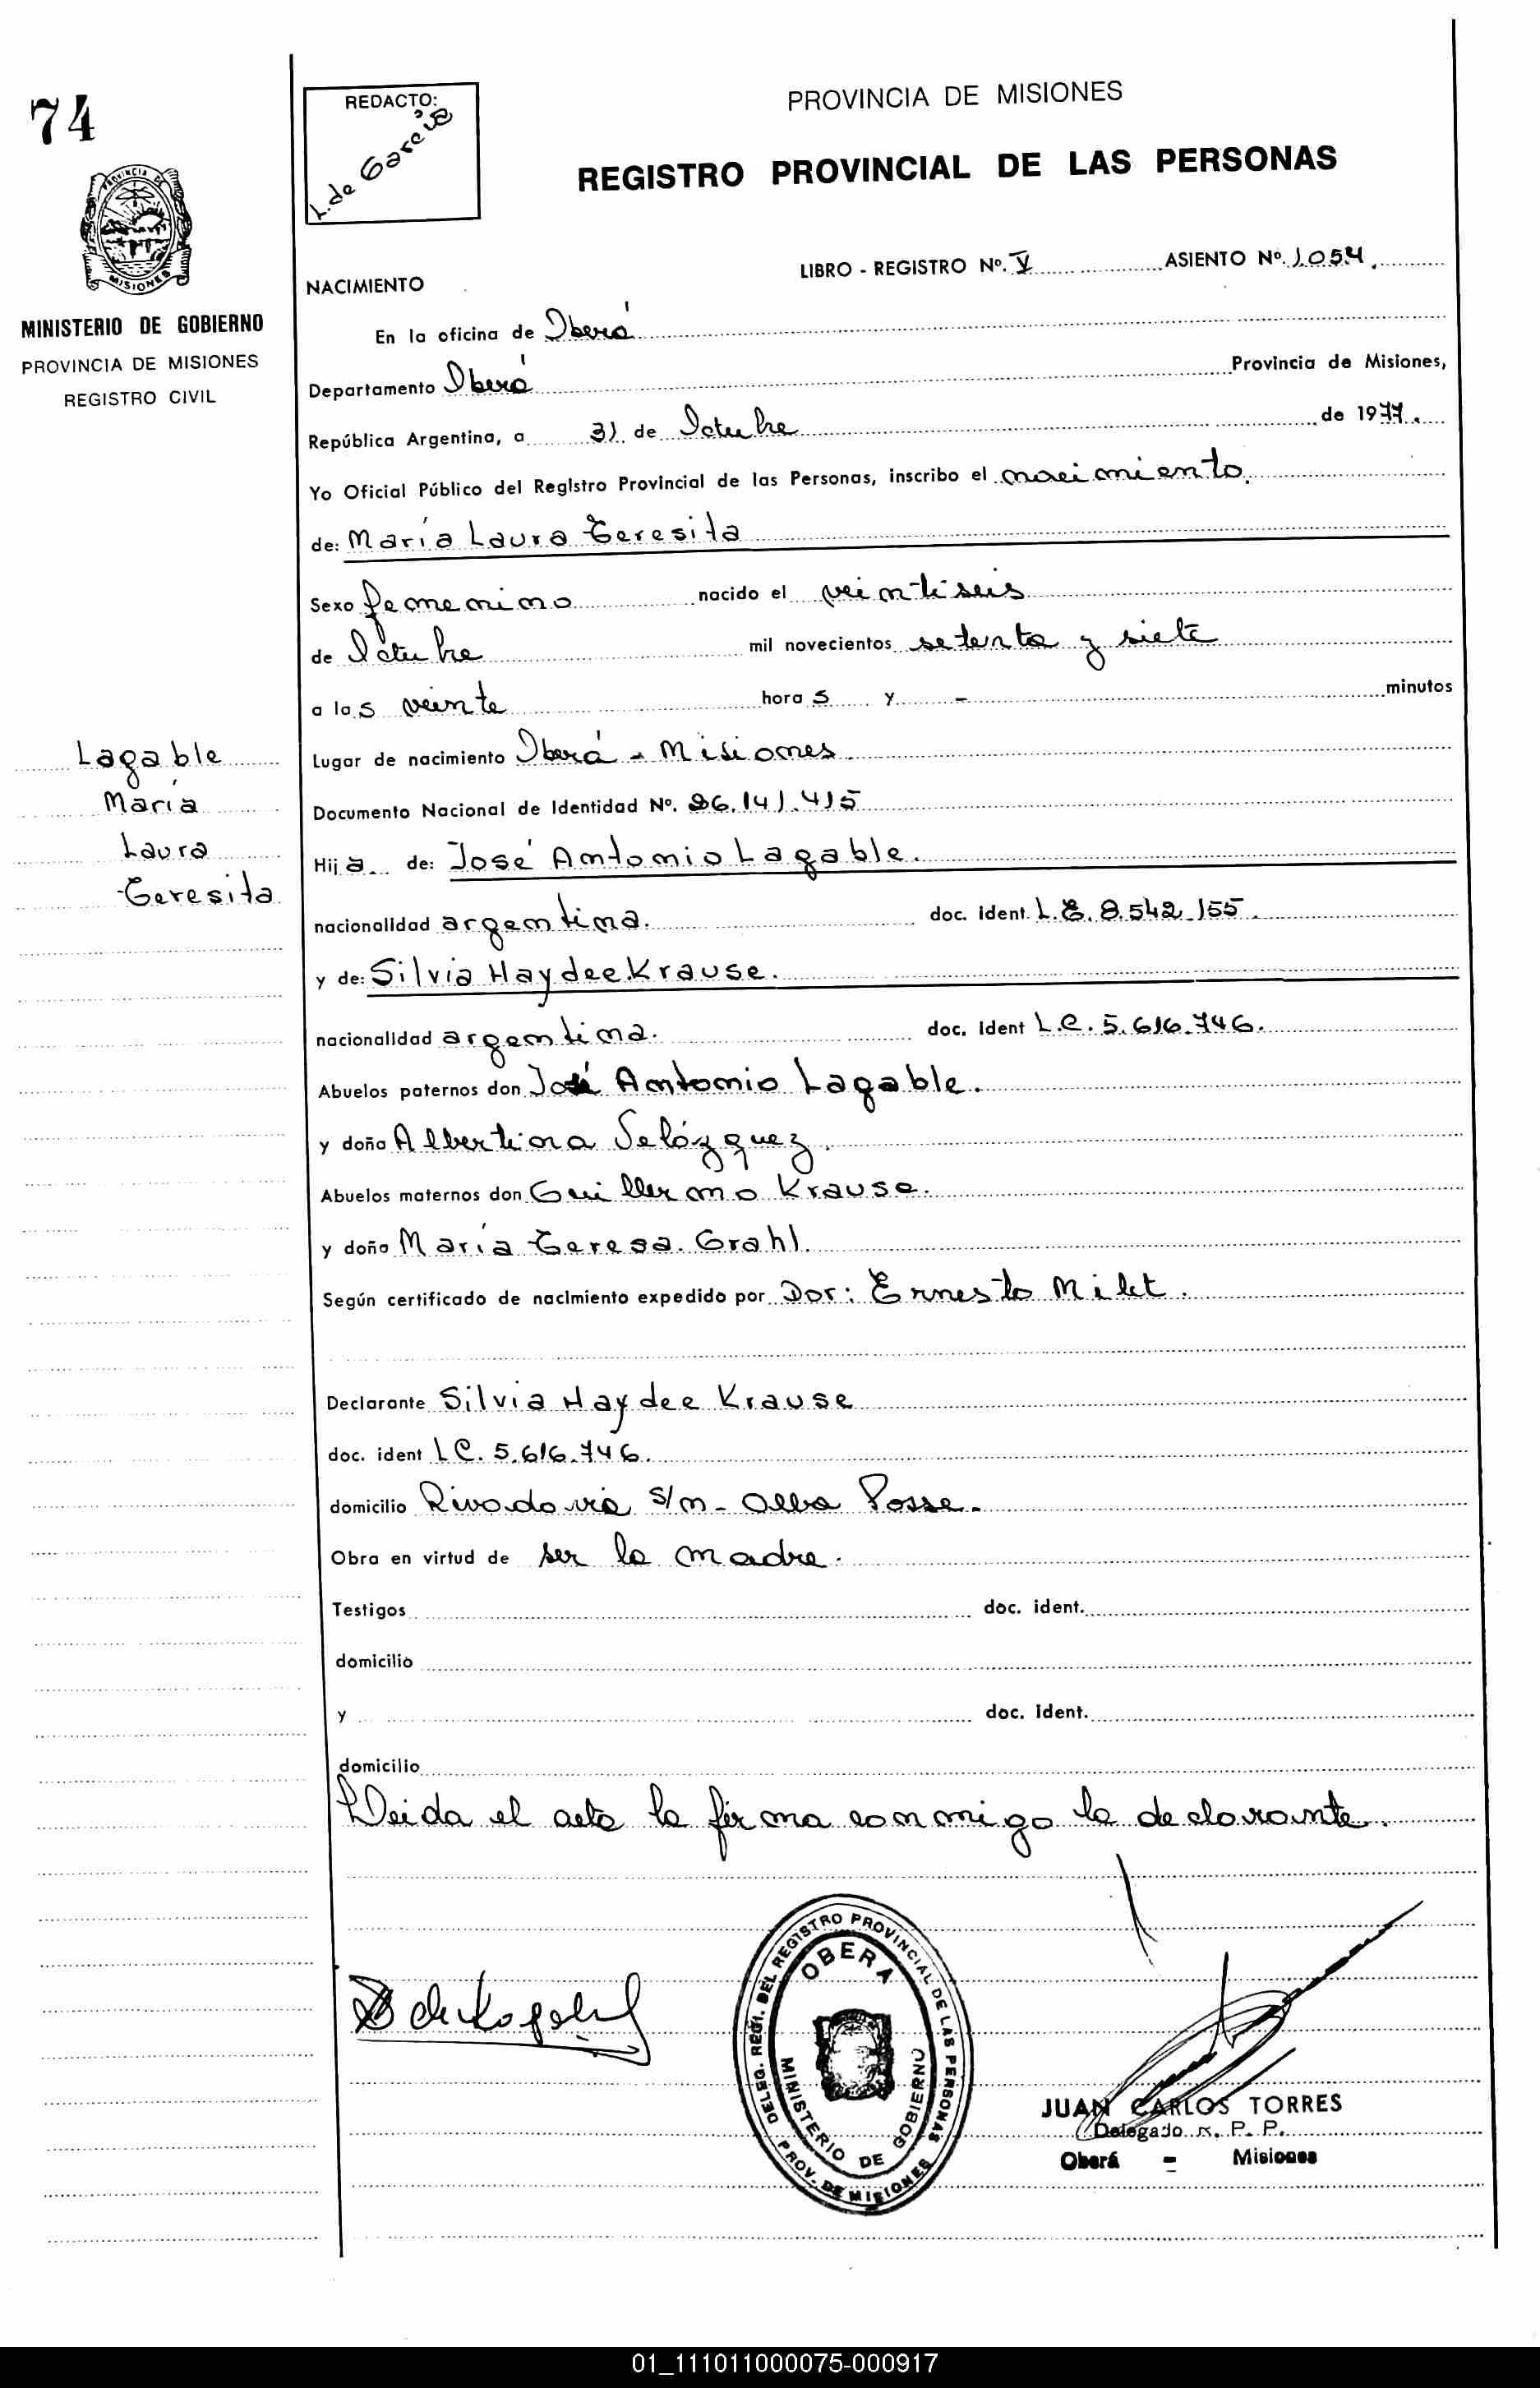 74
PROVINCIA DE MISIONES
MINISTERIO DE GOBIERNO
PROVINCIA DE MISIONES
REGISTRO CIVIL
REDACTO:
L. de García
PROVINCIA DE MISIONES
REGISTRO PROVINCIAL DE LAS PERSONAS
LIBRO - REGISTRO Nº. V ASIENTO Nº. 1054.
NACIMIENTO
En la oficina de Oberá
Departamento Oberá Provincia de Misiones,
República Argentina, a 31 de Octubre de 1977.
Yo Oficial Público del Registro Provincial de las Personas, inscribo el nacimiento.
de: María Laura Teresita
Sexo femenino nacido el veintiseis
de Octubre mil novecientos setenta y siete
a las veinte horas y - minutos
Lugar de nacimiento Oberá - Misiones.
Documento Nacional de Identidad Nº. 26.141.415
Hija de: José Antonio Lagable.
nacionalidad argentina. doc. ident. L.E. 8.542.155.
y de: Silvia Haydee Krause.
nacionalidad argentina. doc. ident L.C. 5.616.746.
Abuelos paternos don José Antonio Lagable.
y doña Albertina Velázquez.
Abuelos maternos don Guillermo Krause.
y doña María Teresa Grahl.
Según certificado de nacimiento expedido por Dor: Ernesto Milet.
Declarante Silvia Haydee Krause
doc. ident L C. 5.616.746.
domicilio Rivadavia s/n - Alba Posse.
Obra en virtud de ser la madre.
Testigos doc. ident.
domicilio
y doc. ident.
domicilio
Leida el acta la firma conmigo la declarante.
Lagable
María
Laura
Teresita
DELEG. REGI. DEL REGISTRO PROVINCIAL DE LAS PERSONAS
PROV. DE MISIONES
OBERA
MINISTERIO DE GOBIERNO
JUAN CARLOS TORRES
Delegado R. P. P.
Oberá - Misiones
01_111011000075-000917